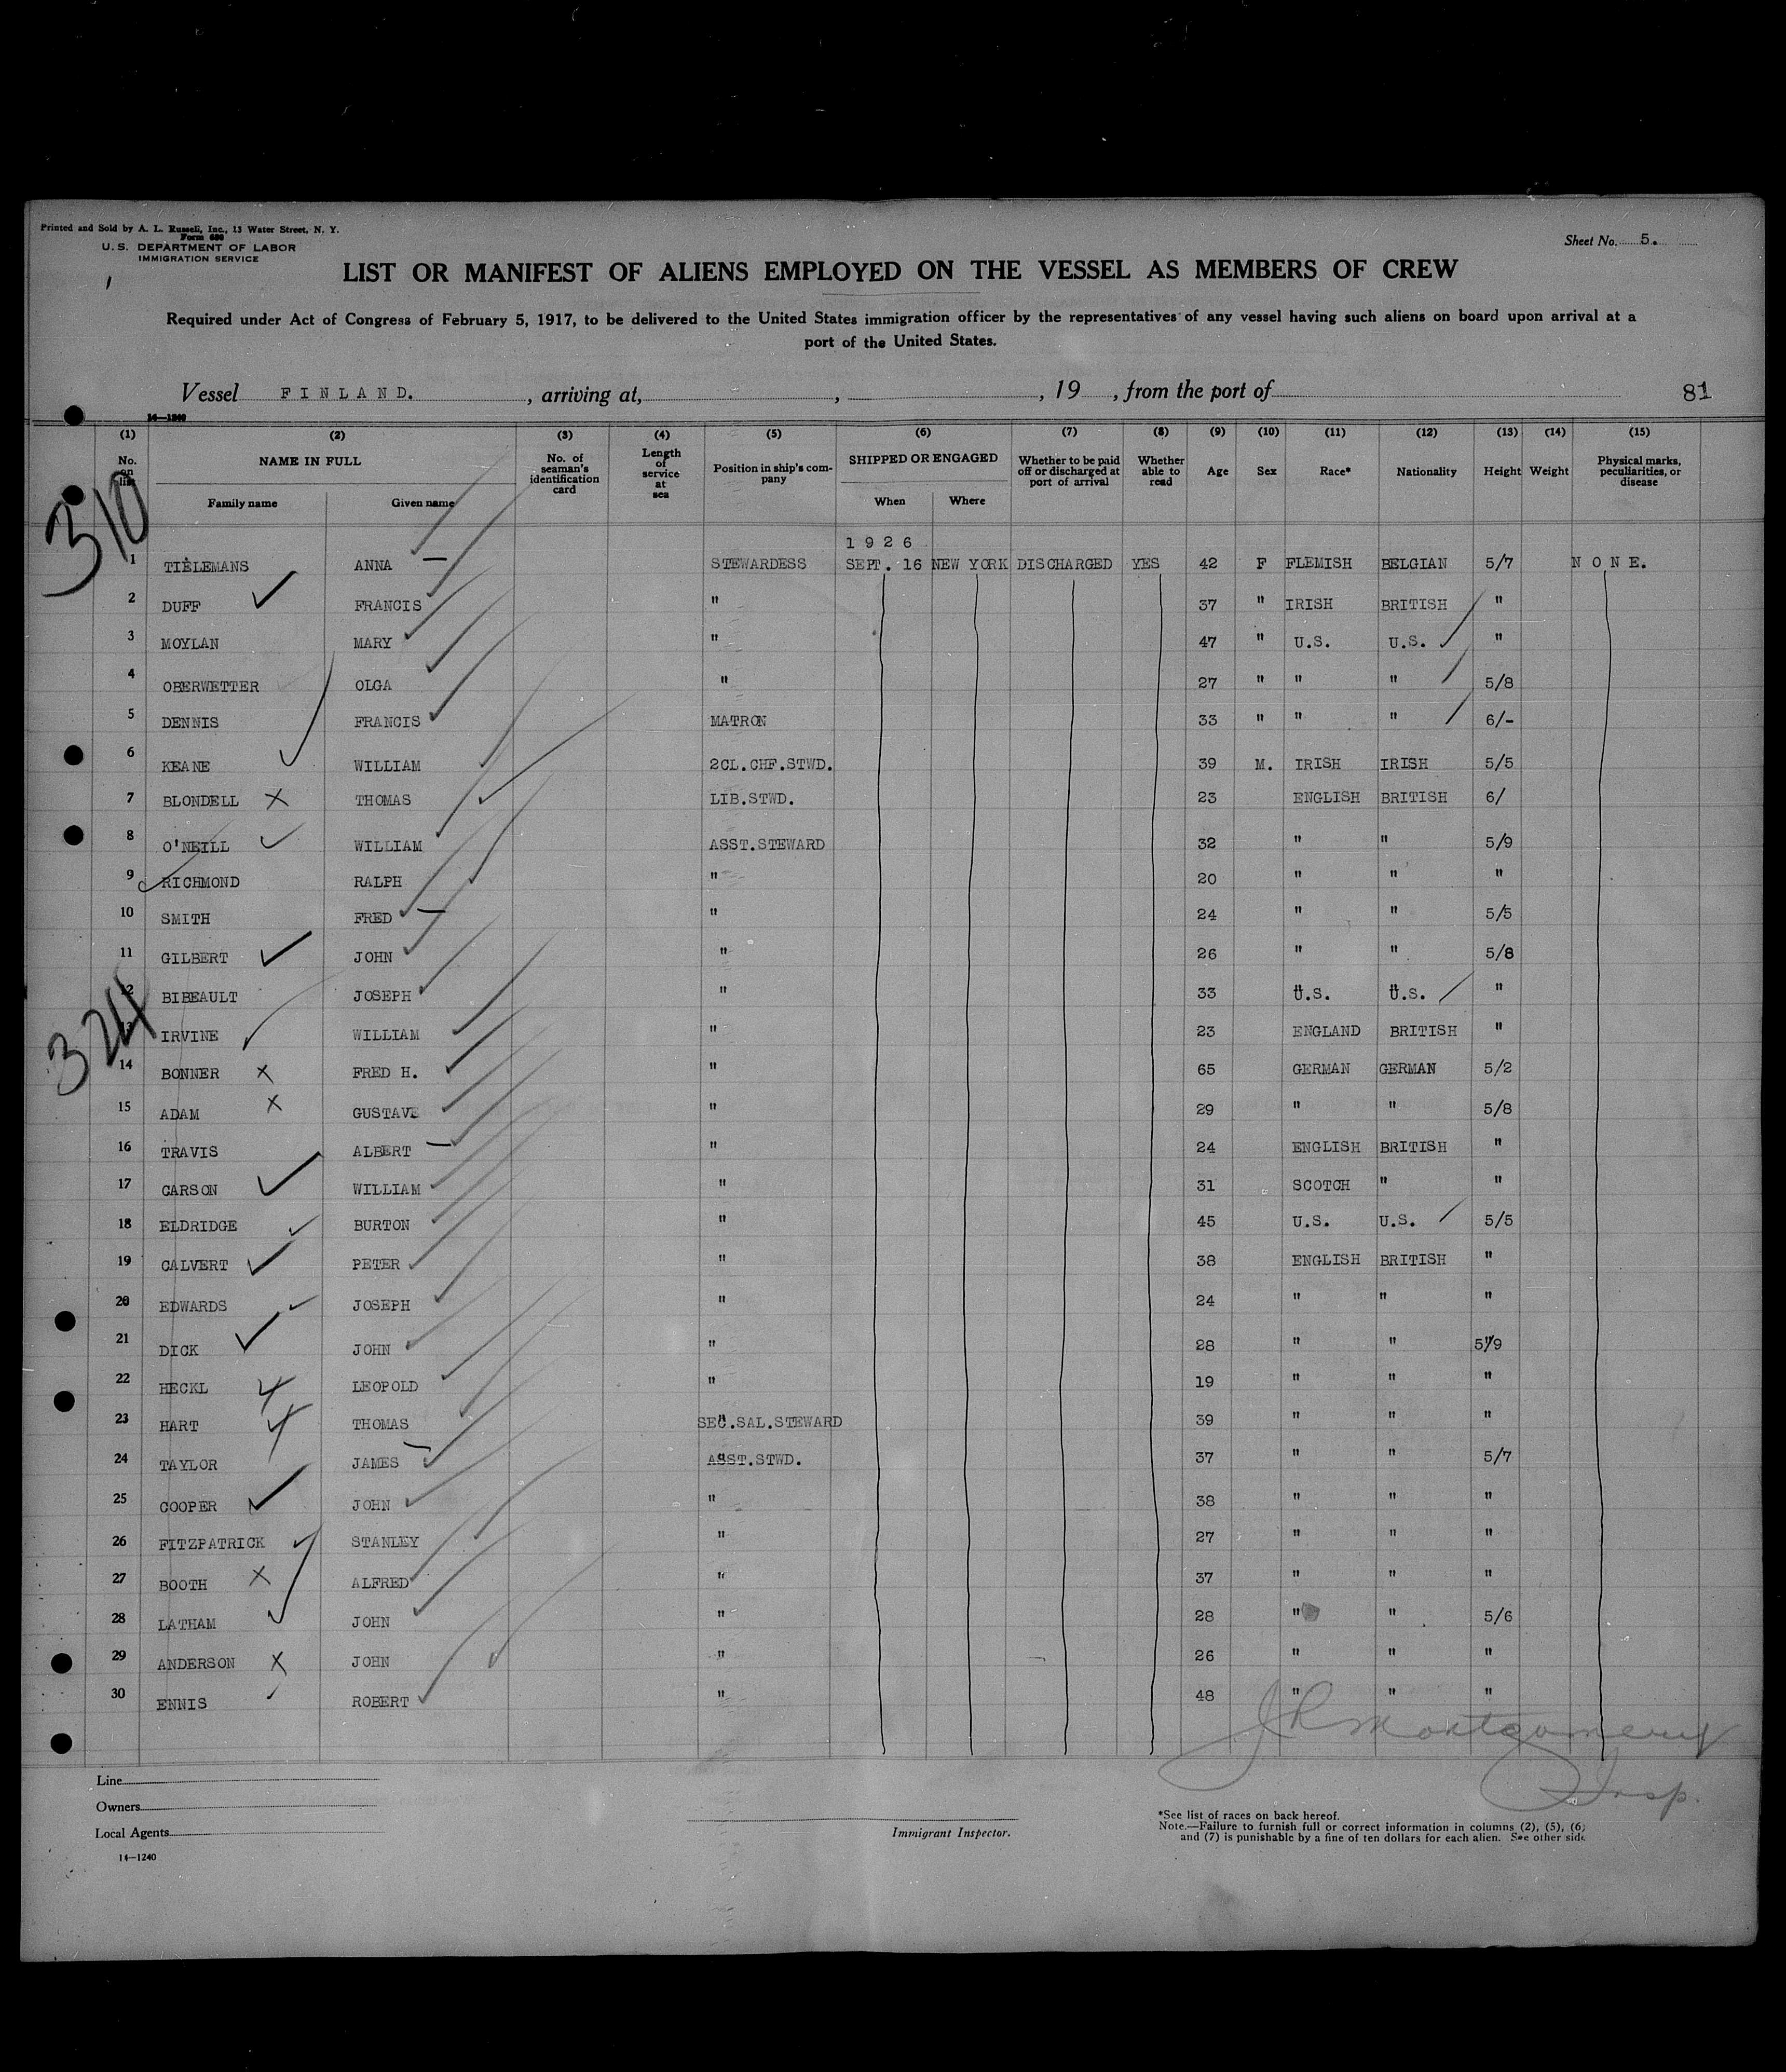 Printed and Sold by A. L. Russell, Inc., 13 Water Street, N. Y.
Form 680
U. S. DEPARTMENT OF LABOR
IMMIGRATION SERVICE
Sheet No. 5.
LIST OR MANIFEST OF ALIENS EMPLOYED ON THE VESSEL AS MEMBERS OF CREW
Required under Act of Congress of February 5, 1917, to be delivered to the United States immigration officer by the representatives of any vessel having such aliens on board upon arrival at a
port of the United States.
Vessel FINLAND. , arriving at, , , 19 , from the port of 81
14—1240
(1) (2) (3) (4) (5) (6) (7) (8) (9) (10) (11) (12) (13) (14) (15)
No. on list NAME IN FULL Family name Given name No. of seaman's identification card Length of service at sea Position in ship's company SHIPPED OR ENGAGED When Where Whether to be paid off or discharged at port of arrival Whether able to read Age Sex Race* Nationality Height Weight Physical marks, peculiarities, or disease
310
1926
1 TIELEMANS ANNA — STEWARDESS SEPT. 16 NEW YORK DISCHARGED YES 42 F FLEMISH BELGIAN 5/7 NONE.
2 DUFF FRANCIS " 37 " IRISH BRITISH "
3 MOYLAN MARY " 47 " U.S. U.S. "
4 OBERWETTER OLGA " 27 " " " 5/8
5 DENNIS FRANCIS MATRON 33 " " " 6/-
6 KEANE WILLIAM 2CL.CHF.STWD. 39 M. IRISH IRISH 5/5
7 BLONDELL THOMAS LIB.STWD. 23 ENGLISH BRITISH 6/
8 O'NEILL WILLIAM ASST.STEWARD 32 " " 5/9
9 RICHMOND RALPH " 20 " " "
10 SMITH FRED — " 24 " " 5/5
11 GILBERT JOHN " 26 " " 5/8
324
12 BIBEAULT JOSEPH " 33 U.S. U.S. "
13 IRVINE WILLIAM " 23 ENGLAND BRITISH "
14 BONNER FRED H. " 65 GERMAN GERMAN 5/2
15 ADAM GUSTAVE " 29 " " 5/8
16 TRAVIS ALBERT — " 24 ENGLISH BRITISH "
17 CARSON WILLIAM " 31 SCOTCH " "
18 ELDRIDGE BURTON " 45 U.S. U.S. 5/5
19 CALVERT PETER " 38 ENGLISH BRITISH "
20 EDWARDS JOSEPH " 24 " " "
21 DICK JOHN " 28 " " 5/9
22 HECKL LEOPOLD " 19 " " "
23 HART THOMAS SEC.SAL.STEWARD 39 " " "
24 TAYLOR JAMES — ASST.STWD. 37 " " 5/7
25 COOPER JOHN " 38 " " "
26 FITZPATRICK STANLEY " 27 " " "
27 BOOTH ALFRED " 37 " " "
28 LATHAM JOHN " 28 " " 5/6
29 ANDERSON JOHN " 26 " " "
30 ENNIS ROBERT " 48 " " "
J R Montgomery
Insp.
Line
Owners
Local Agents
14—1240
Immigrant Inspector.
*See list of races on back hereof.
Note.—Failure to furnish full or correct information in columns (2), (5), (6)
and (7) is punishable by a fine of ten dollars for each alien. See other side